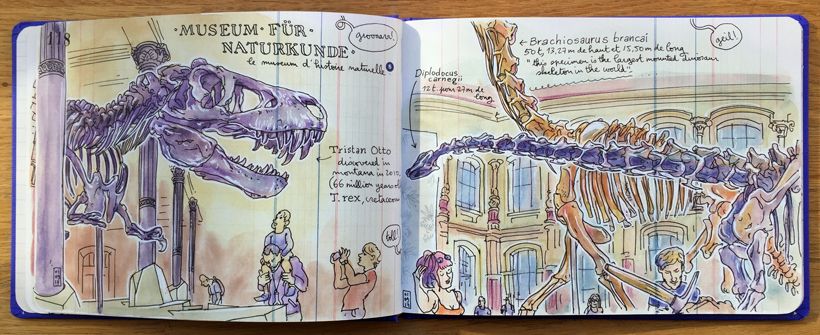 118
MUSEUM · FÜR
NATURKUNDE ·
le museum d'histoire naturelle
grooaar!
Tristan Otto
discovered in
montana in 2010,
(66 million years o
T. rex, cretaceou
toll!
Diplodocus
carnegii
12 t. pour 27 m de
long
← Brachiosaurus brancai
50 t, 13,27 m de haut et 15,50 m de long
"this specimen is the largest mounted dinosaur
skeleton in the world"
geil!